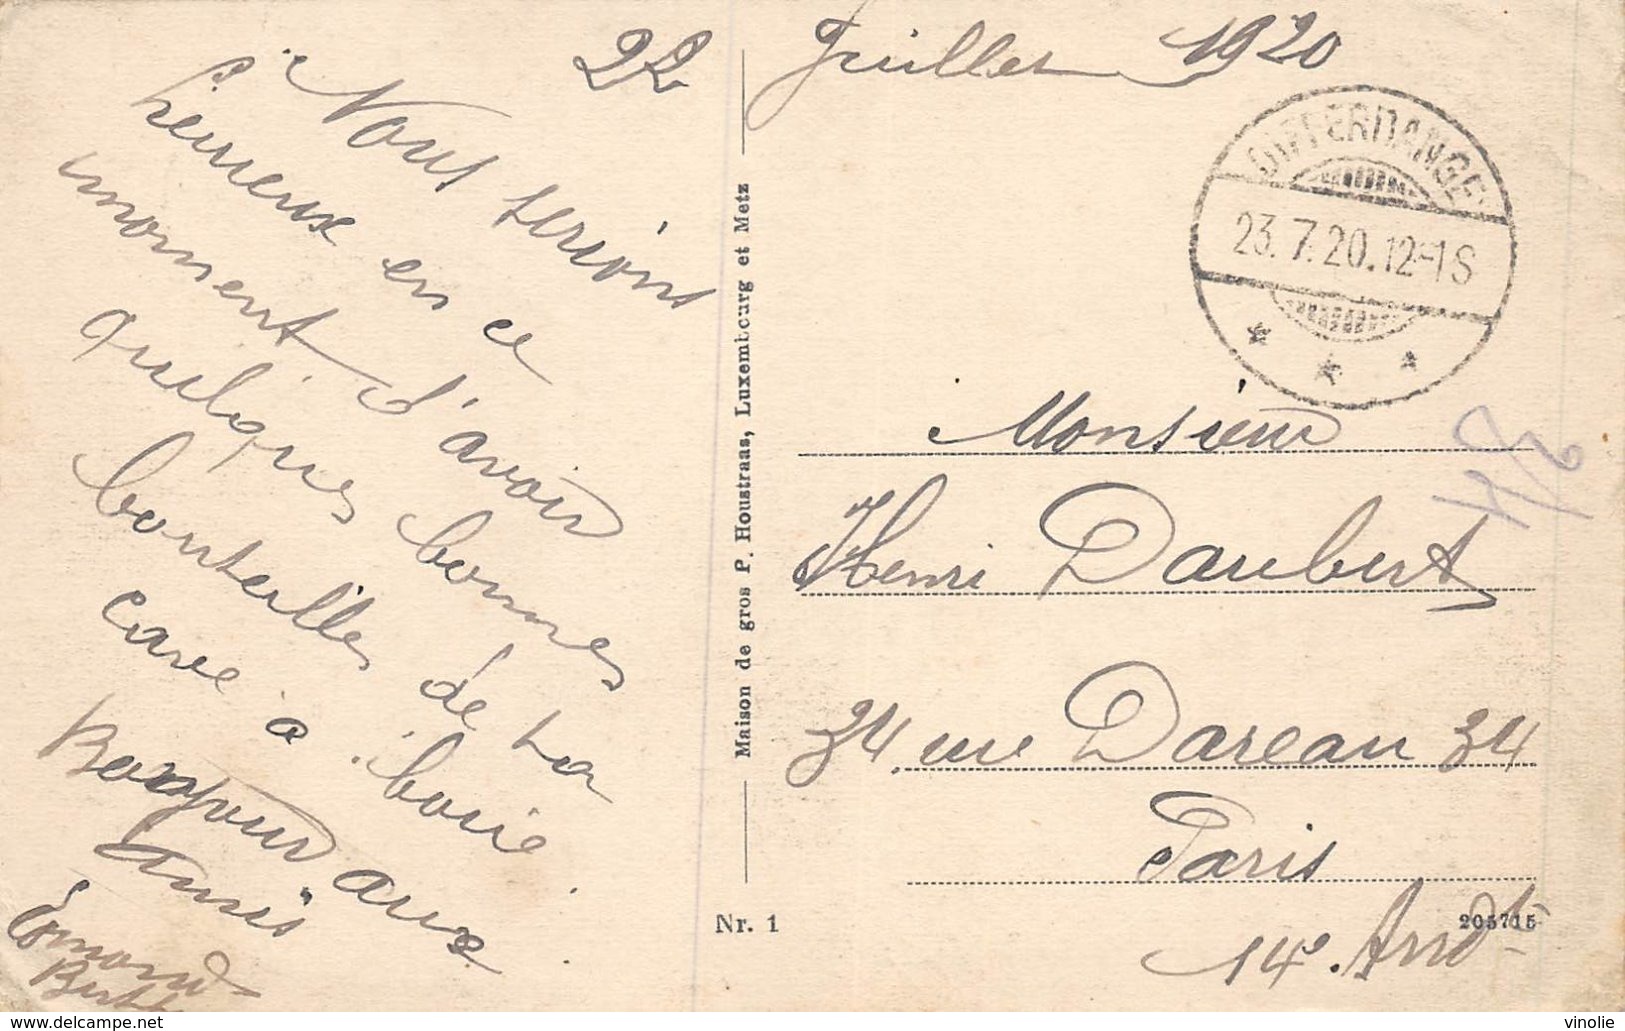 22 Juillet 1920
Nous serions
heureux en ce
moment d'avoir
quelques bonnes
bouteilles de la
cave à boire
Bonjour aux
amis
Edmond
DIFFERDANGE
23.7.20.12-1S
Maison de gros P. Houstraas, Luxembourg et Metz
Monsieur
Henri Daubert
34, rue Dareau 34
Paris
14e. Arrdt
Nr. 1
205715
delcampe.net
vinolie